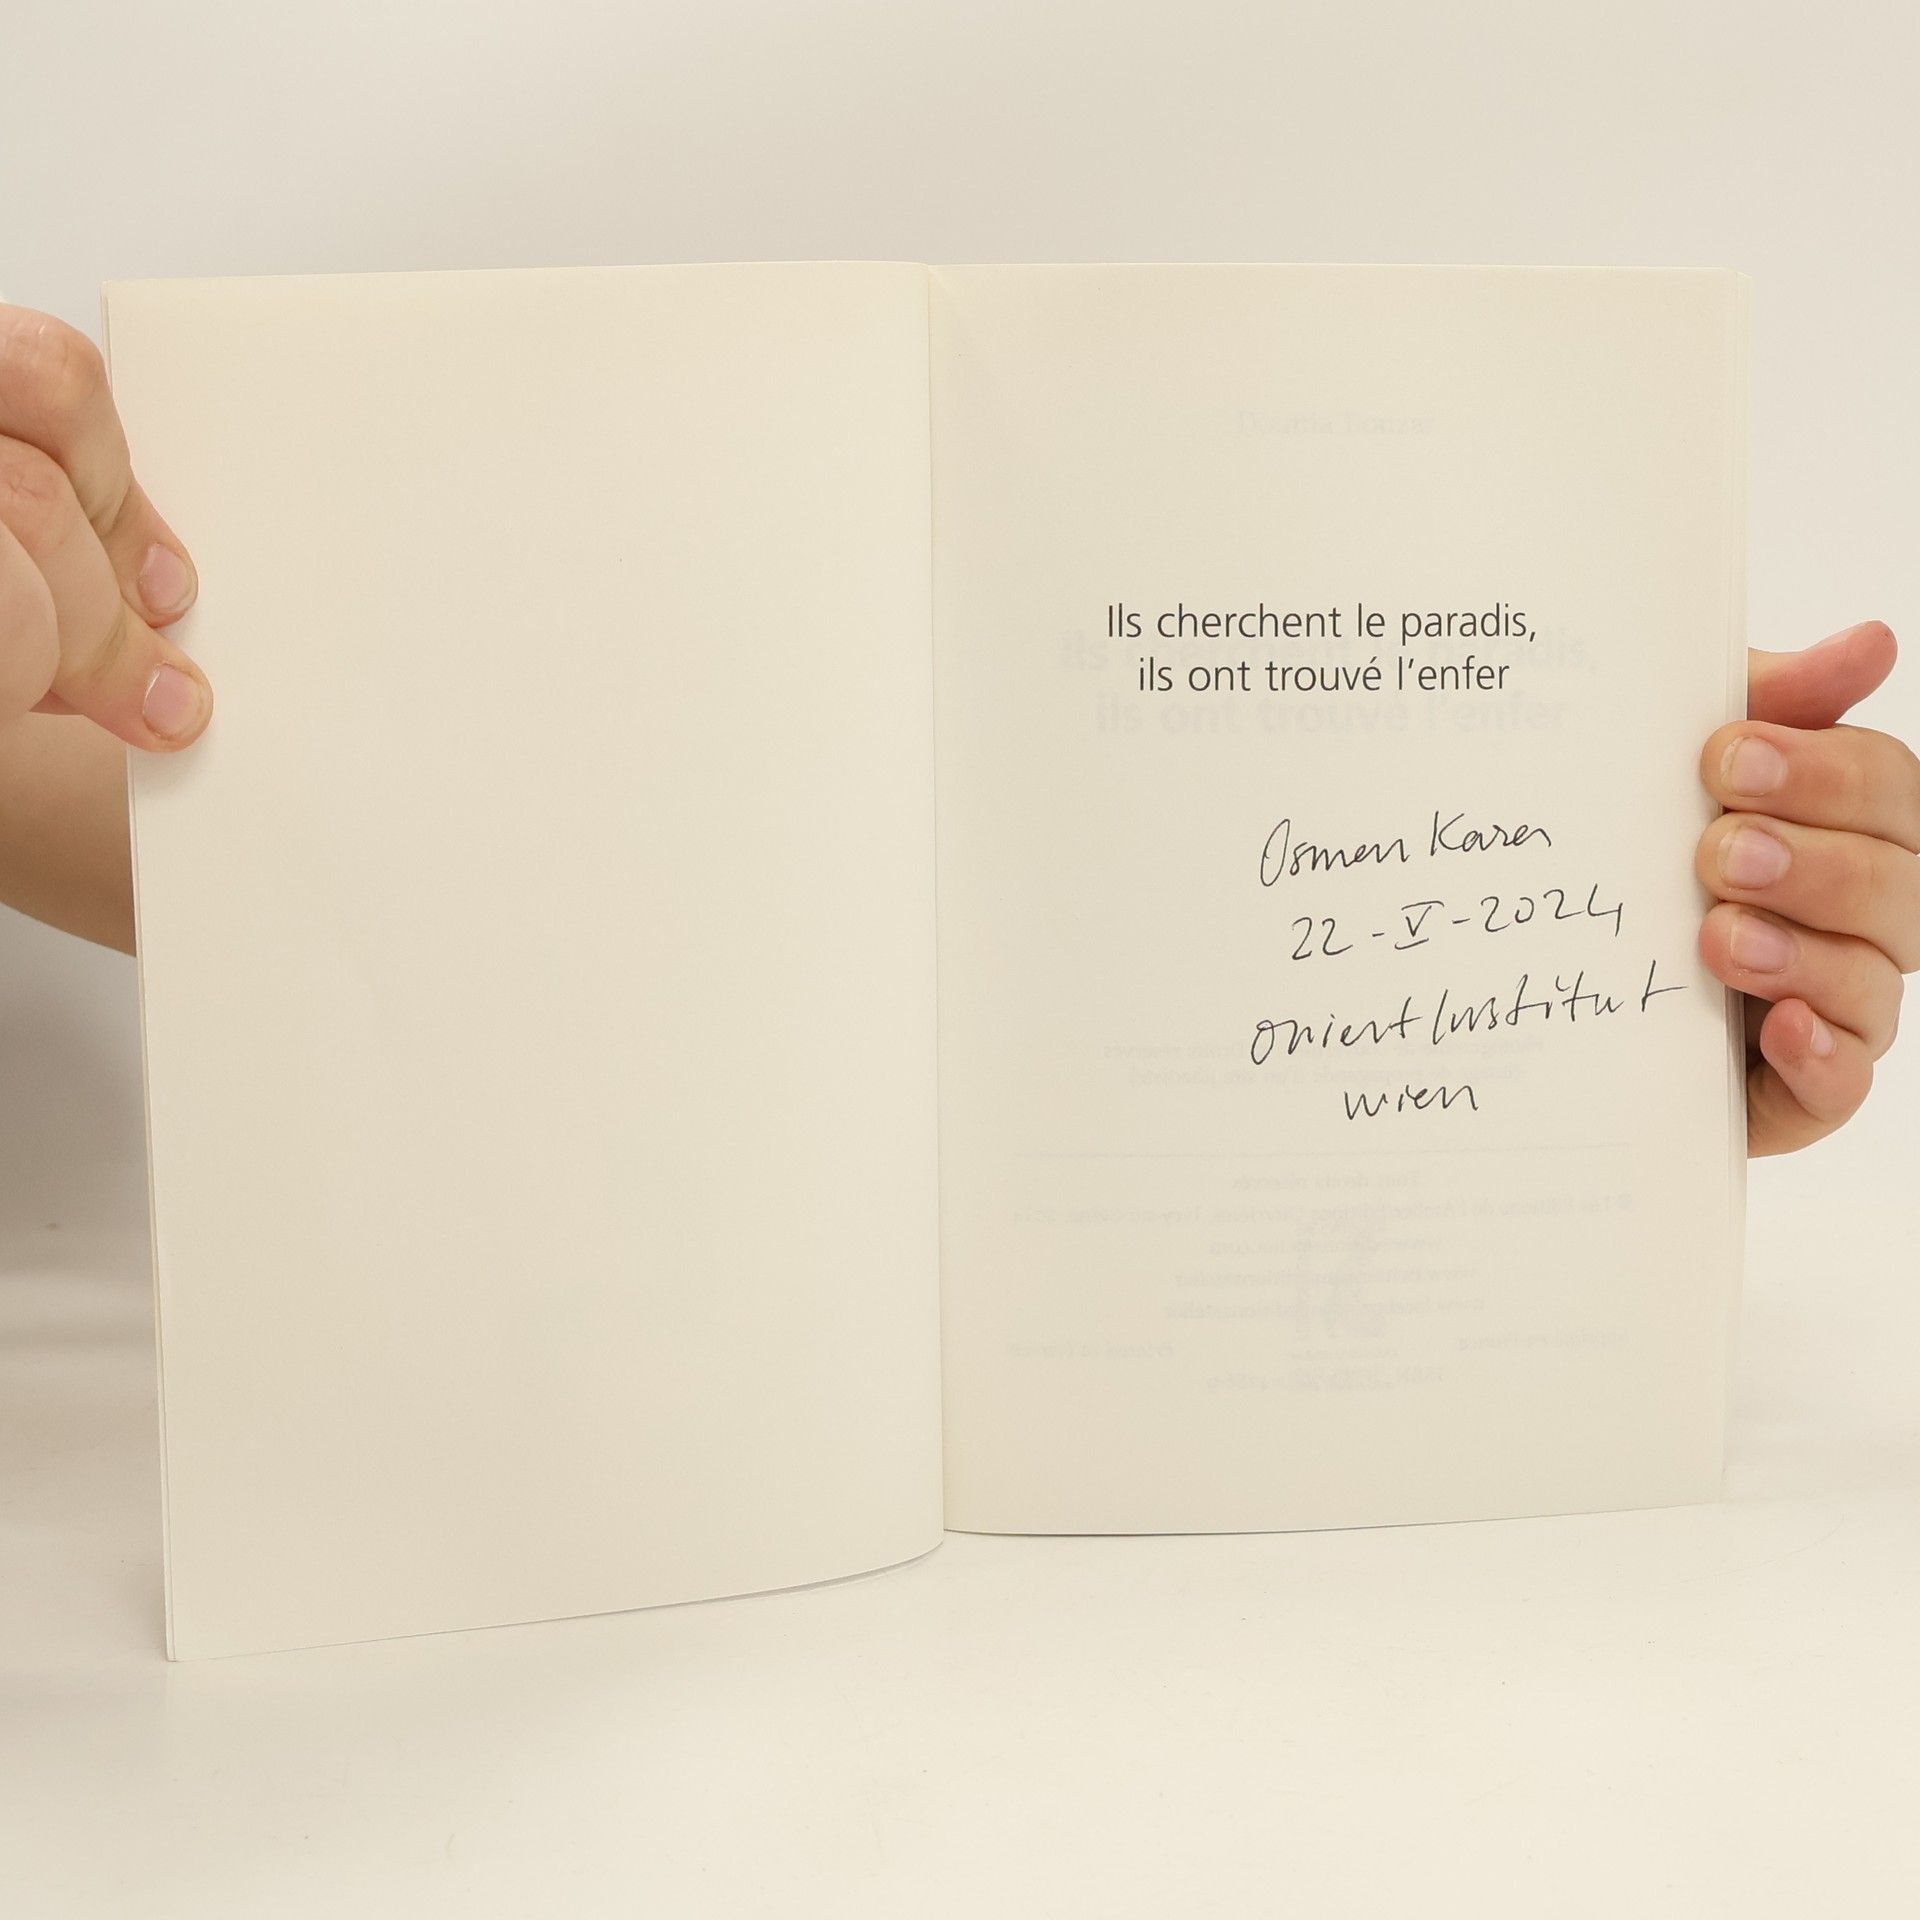 Ils cherchent le paradis,
ils ont trouvé l'enfer
Osman Kara
22-V-2024
Orient Institut
Wien